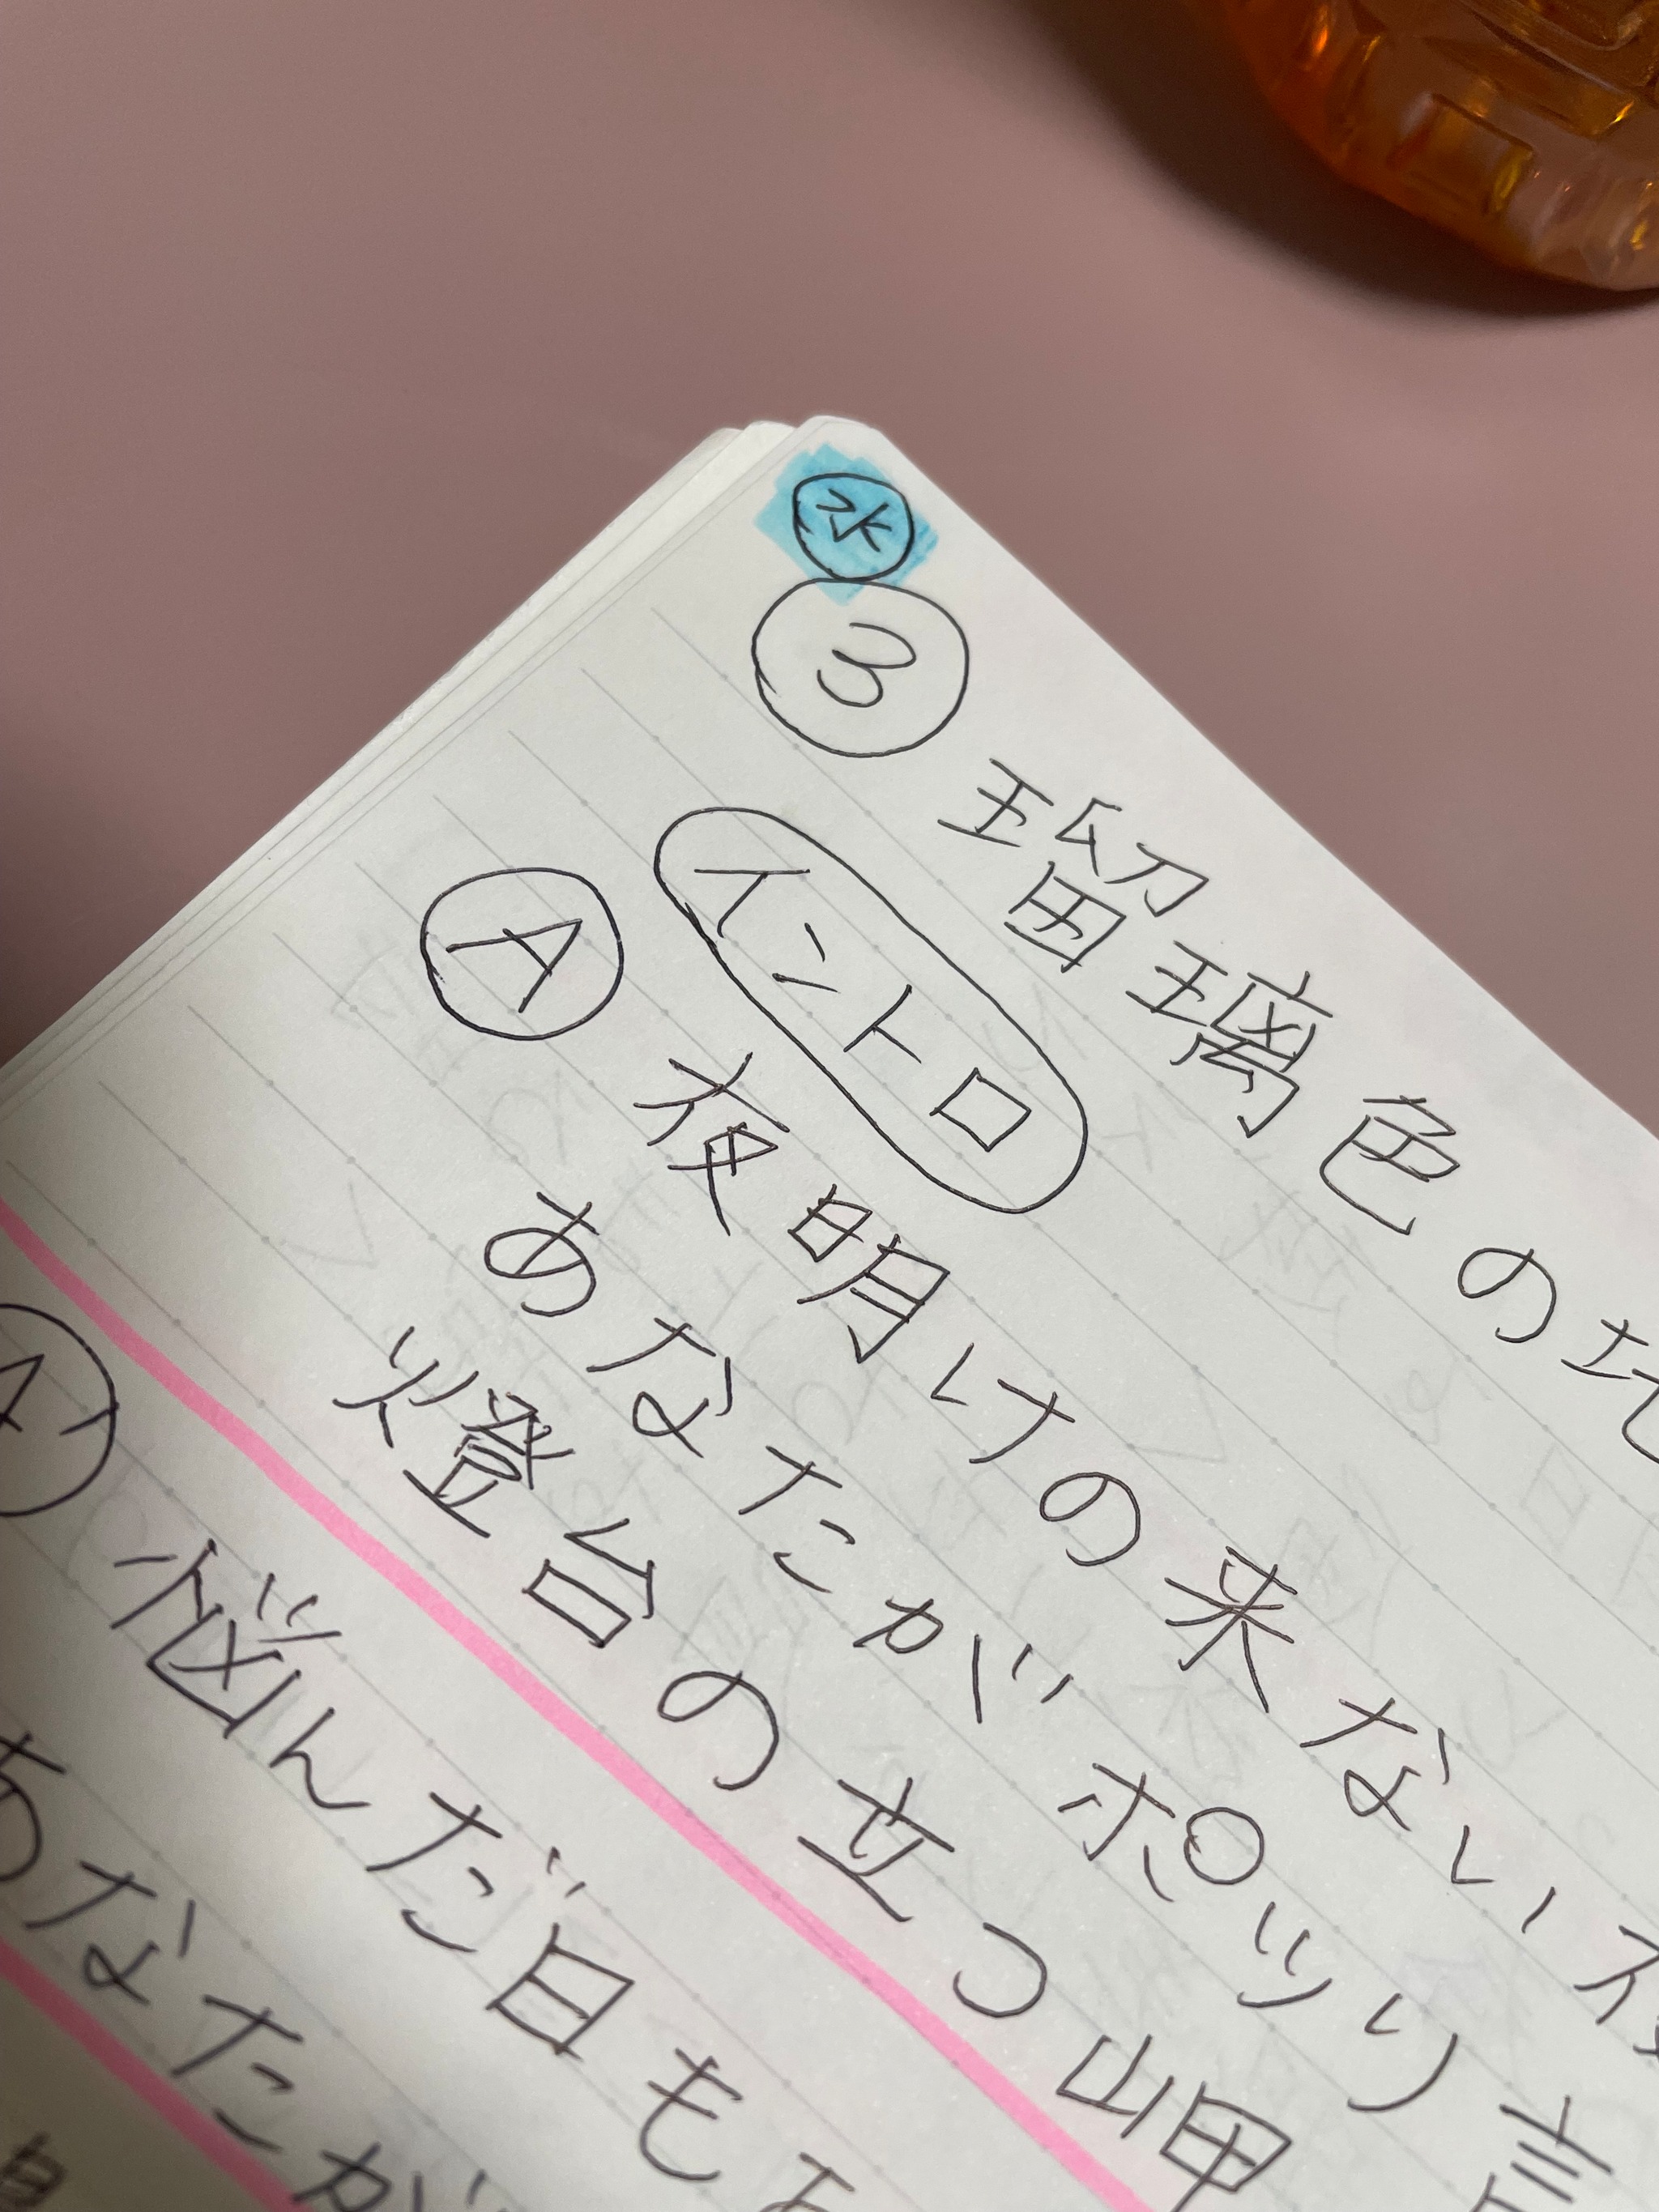 水
③ 瑠璃色の地
イントロ
Ⓐ 夜明けの来ない夜
あなたがポツリ言
燈台の立つ岬
A' 悩んだ日もあ
あなたが